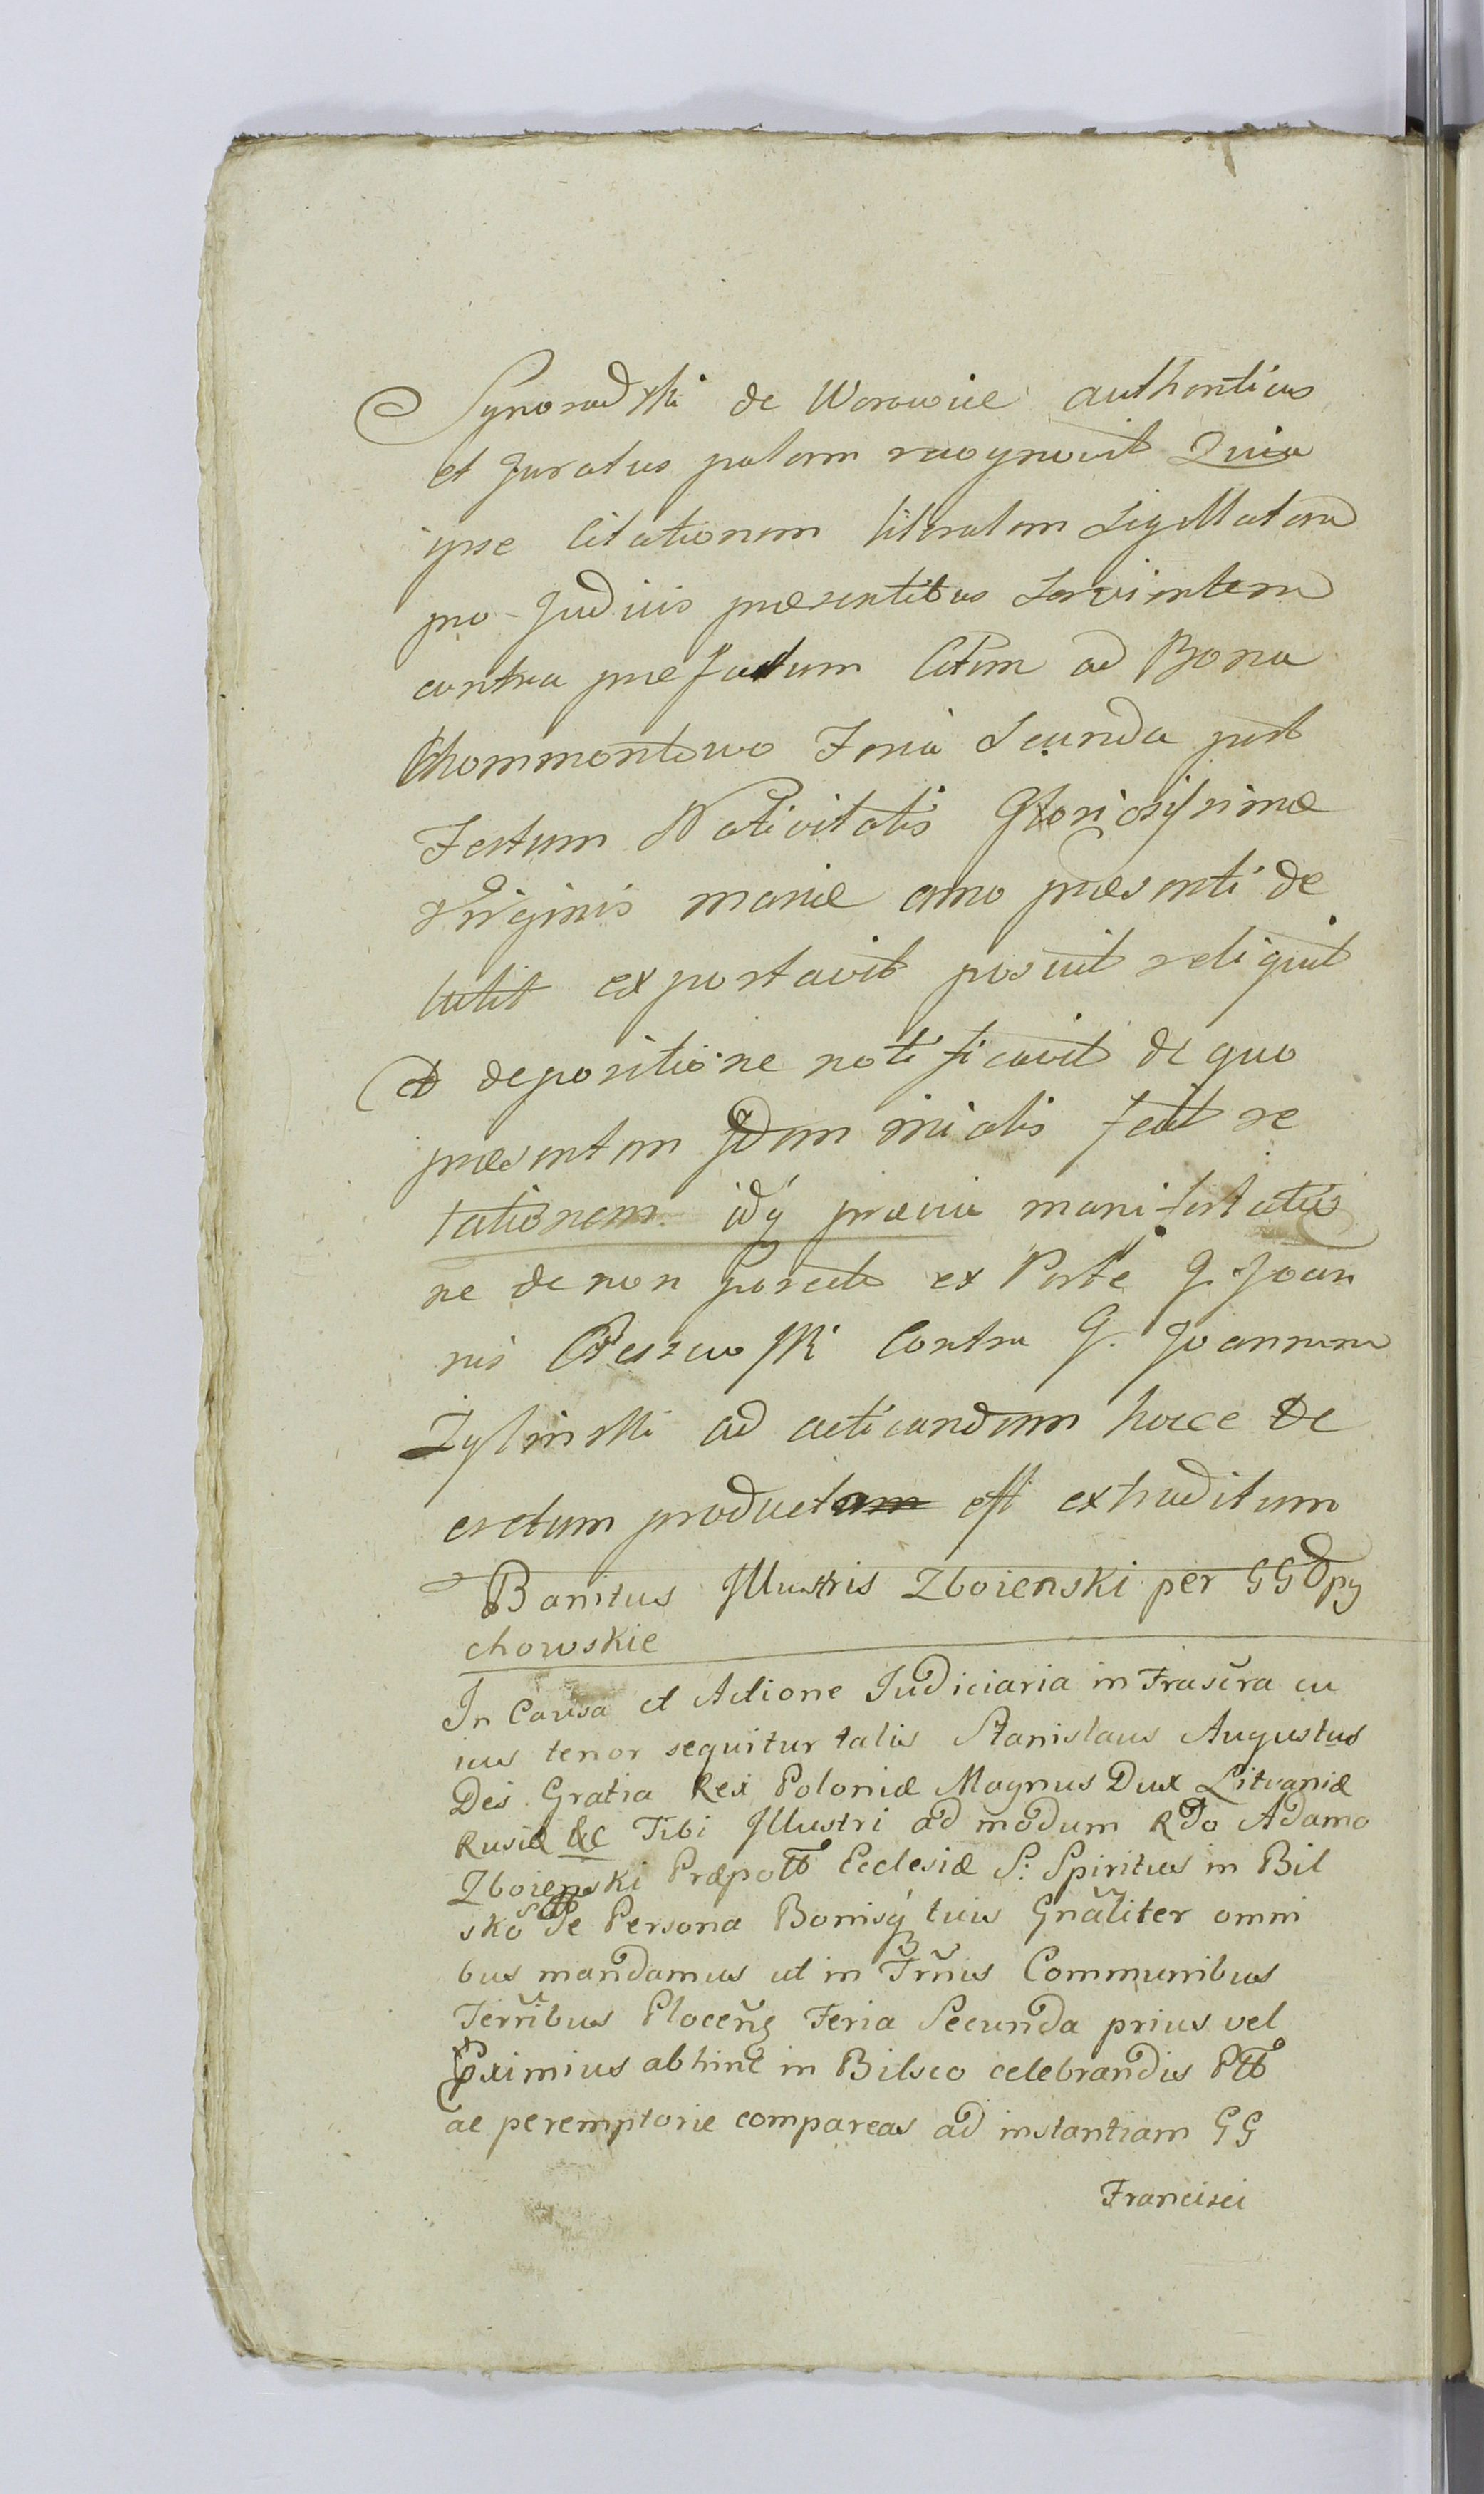 Synoradzki de Worowice authenticus
et Juratus palam recognovit Quia
ipse Citationem literalem Sigillatam
pro Judiciis præsentibus Servientem
contra præfatum Citum ad Bona
Chommontowo Feria Secunda post
Festum Nativitatis Gloriosissimæ
Virginis mariæ anno præsenti de
tulit exportavit posuit reliquit
et depositione notificavit de quo
præsentem idem mi alis fecit re
lationem. idq́ prævia manifestatio
ne de non parente ex Parte G. Joan
nis Cieszewski Contra G. Joannem
Zylinski ad acticandum hocce De
cretum product est extraditum
Banitus Illustris Zboienski per GG Opy
chowskie
In Causa et Actione Iudiciaria infrascra cu
ius tenor sequitur talis Stanislaus Augustus
Dei Gratia Rex Poloniæ Magnus Dux Litvaniæ
Rusiæ &c Tibi Illustri ad modum Rdo Adamo
Zboienski Præpotto Ecclesiæ S: Spiritus in Bil
sko de Persona Bonisq́ tuis Gnãliter omni
bus mandamus ut in Trñis Communibus
Terrñibus Plocenẽ Feria Secunda prius vel
Pximius abhinc in Bilsco celebrandis Ptto
ac peremptorie compareas ad instantiam GG
Francisci